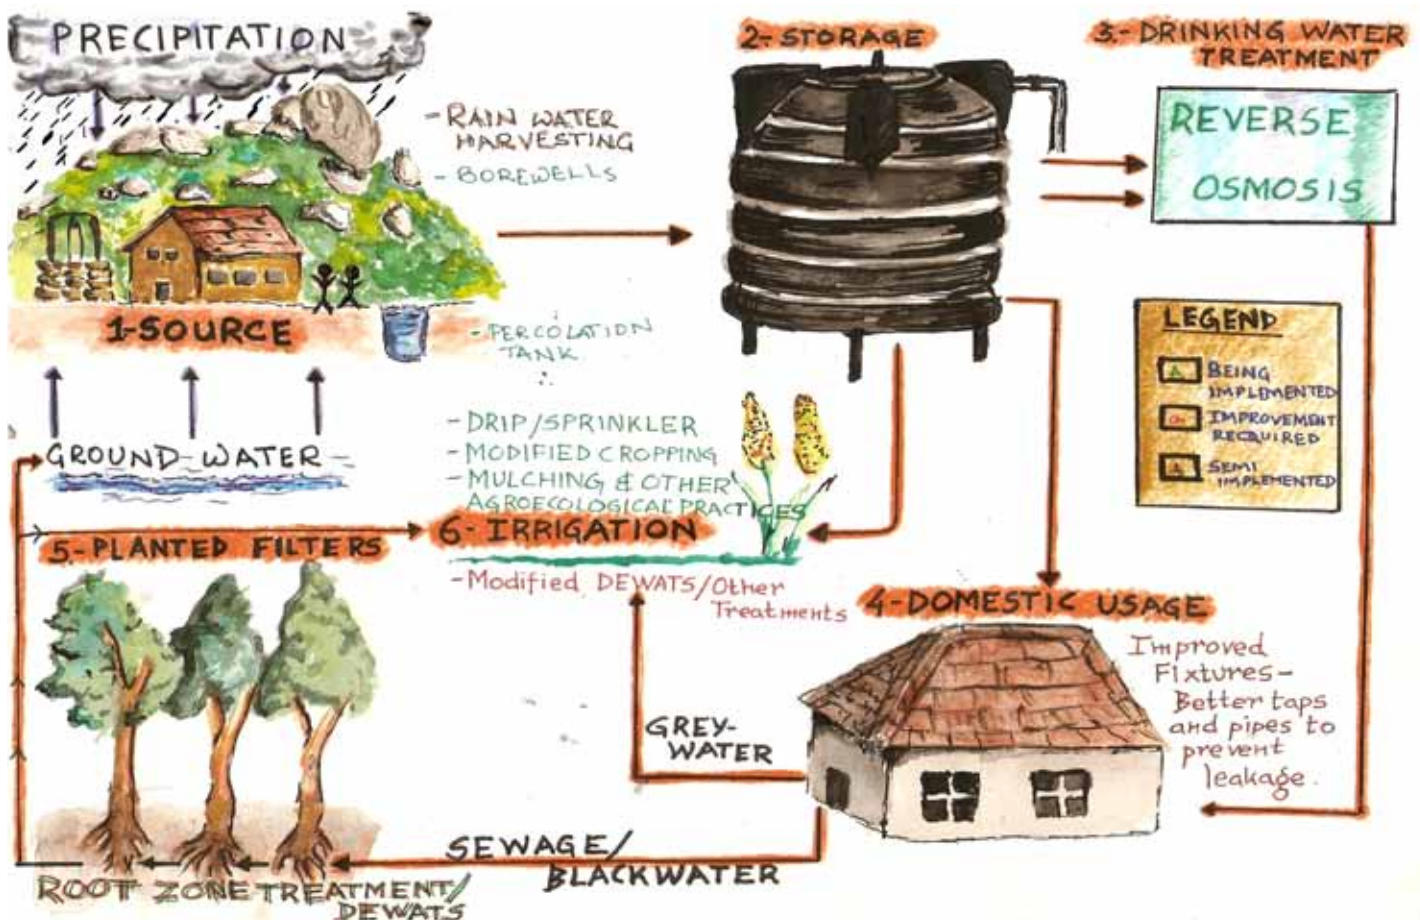 PRECIPITATION
- RAIN WATER
HARVESTING
- BOREWELLS
1-SOURCE
- PERCOLATION
TANK
GROUND-WATER
2-STORAGE
3-DRINKING WATER
TREATMENT
REVERSE
OSMOSIS
LEGEND
BEING
IMPLEMENTED
IMPROVEMENT
RECQUIRED
SEMI
IMPLEMENTED
- DRIP/SPRINKLER
- MODIFIED CROPPING
- MULCHING & OTHER
AGROECOLOGICAL PRACTICES
6-IRRIGATION
- Modified DEWATS/Other
Treatments
4-DOMESTIC USAGE
Improved
Fixtures-
Better taps
and pipes to
prevent
leakage.
GREY-
WATER
SEWAGE/
BLACKWATER
5-PLANTED FILTERS
ROOT ZONE TREATMENT/
DEWATS